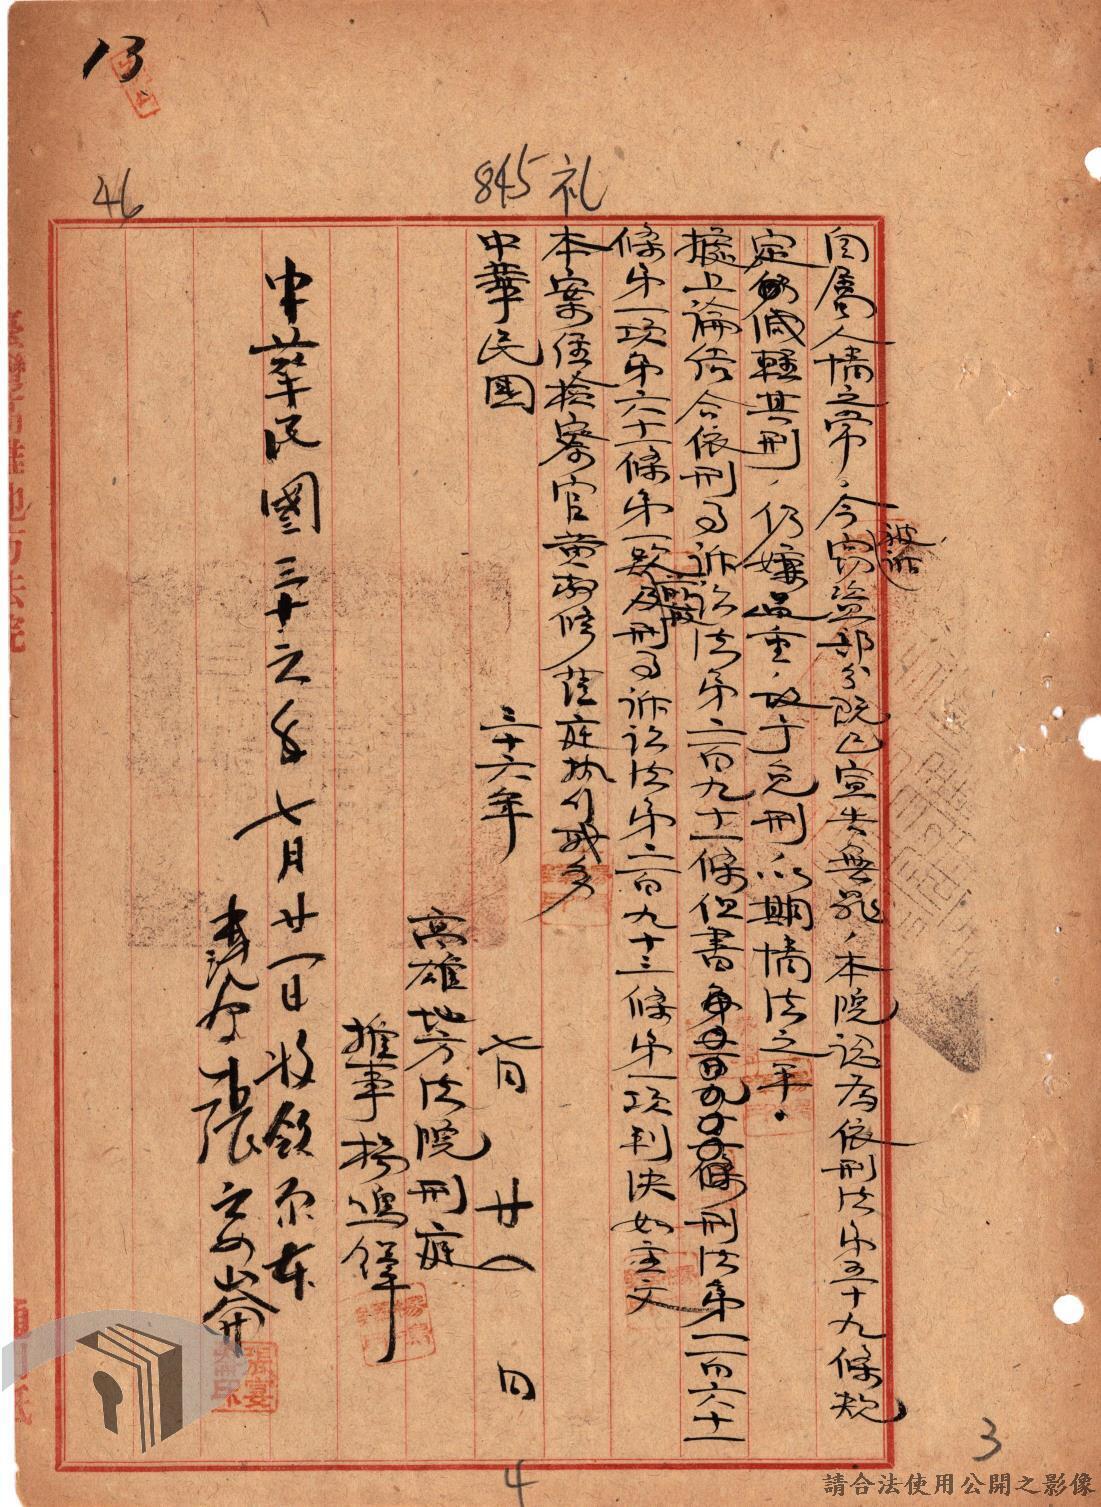 13
46
845礼
自屬人情之常，今被訴竊盜部分既已宣告無罪，本院認為依刑法第五十九條規
定減輕其刑，仍嫌過重，故予免刑以期情法之平。
據上論結合依刑事訴訟法第二百九十一條但書刑法第一百六十一
條第一項第六十一條第一款前段及刑事訴訟法第二百九十三條第一項判決如主文
本案經檢察官黃 修蒞庭執行職務
中華民國三十六年七月廿八日
高雄地方法院刑庭
推事楊鳴鐸
中華民國三十六年七月廿一日收領原本
書記官張宴崙
臺灣高雄地方法院
3
4
請合法使用公開之影像